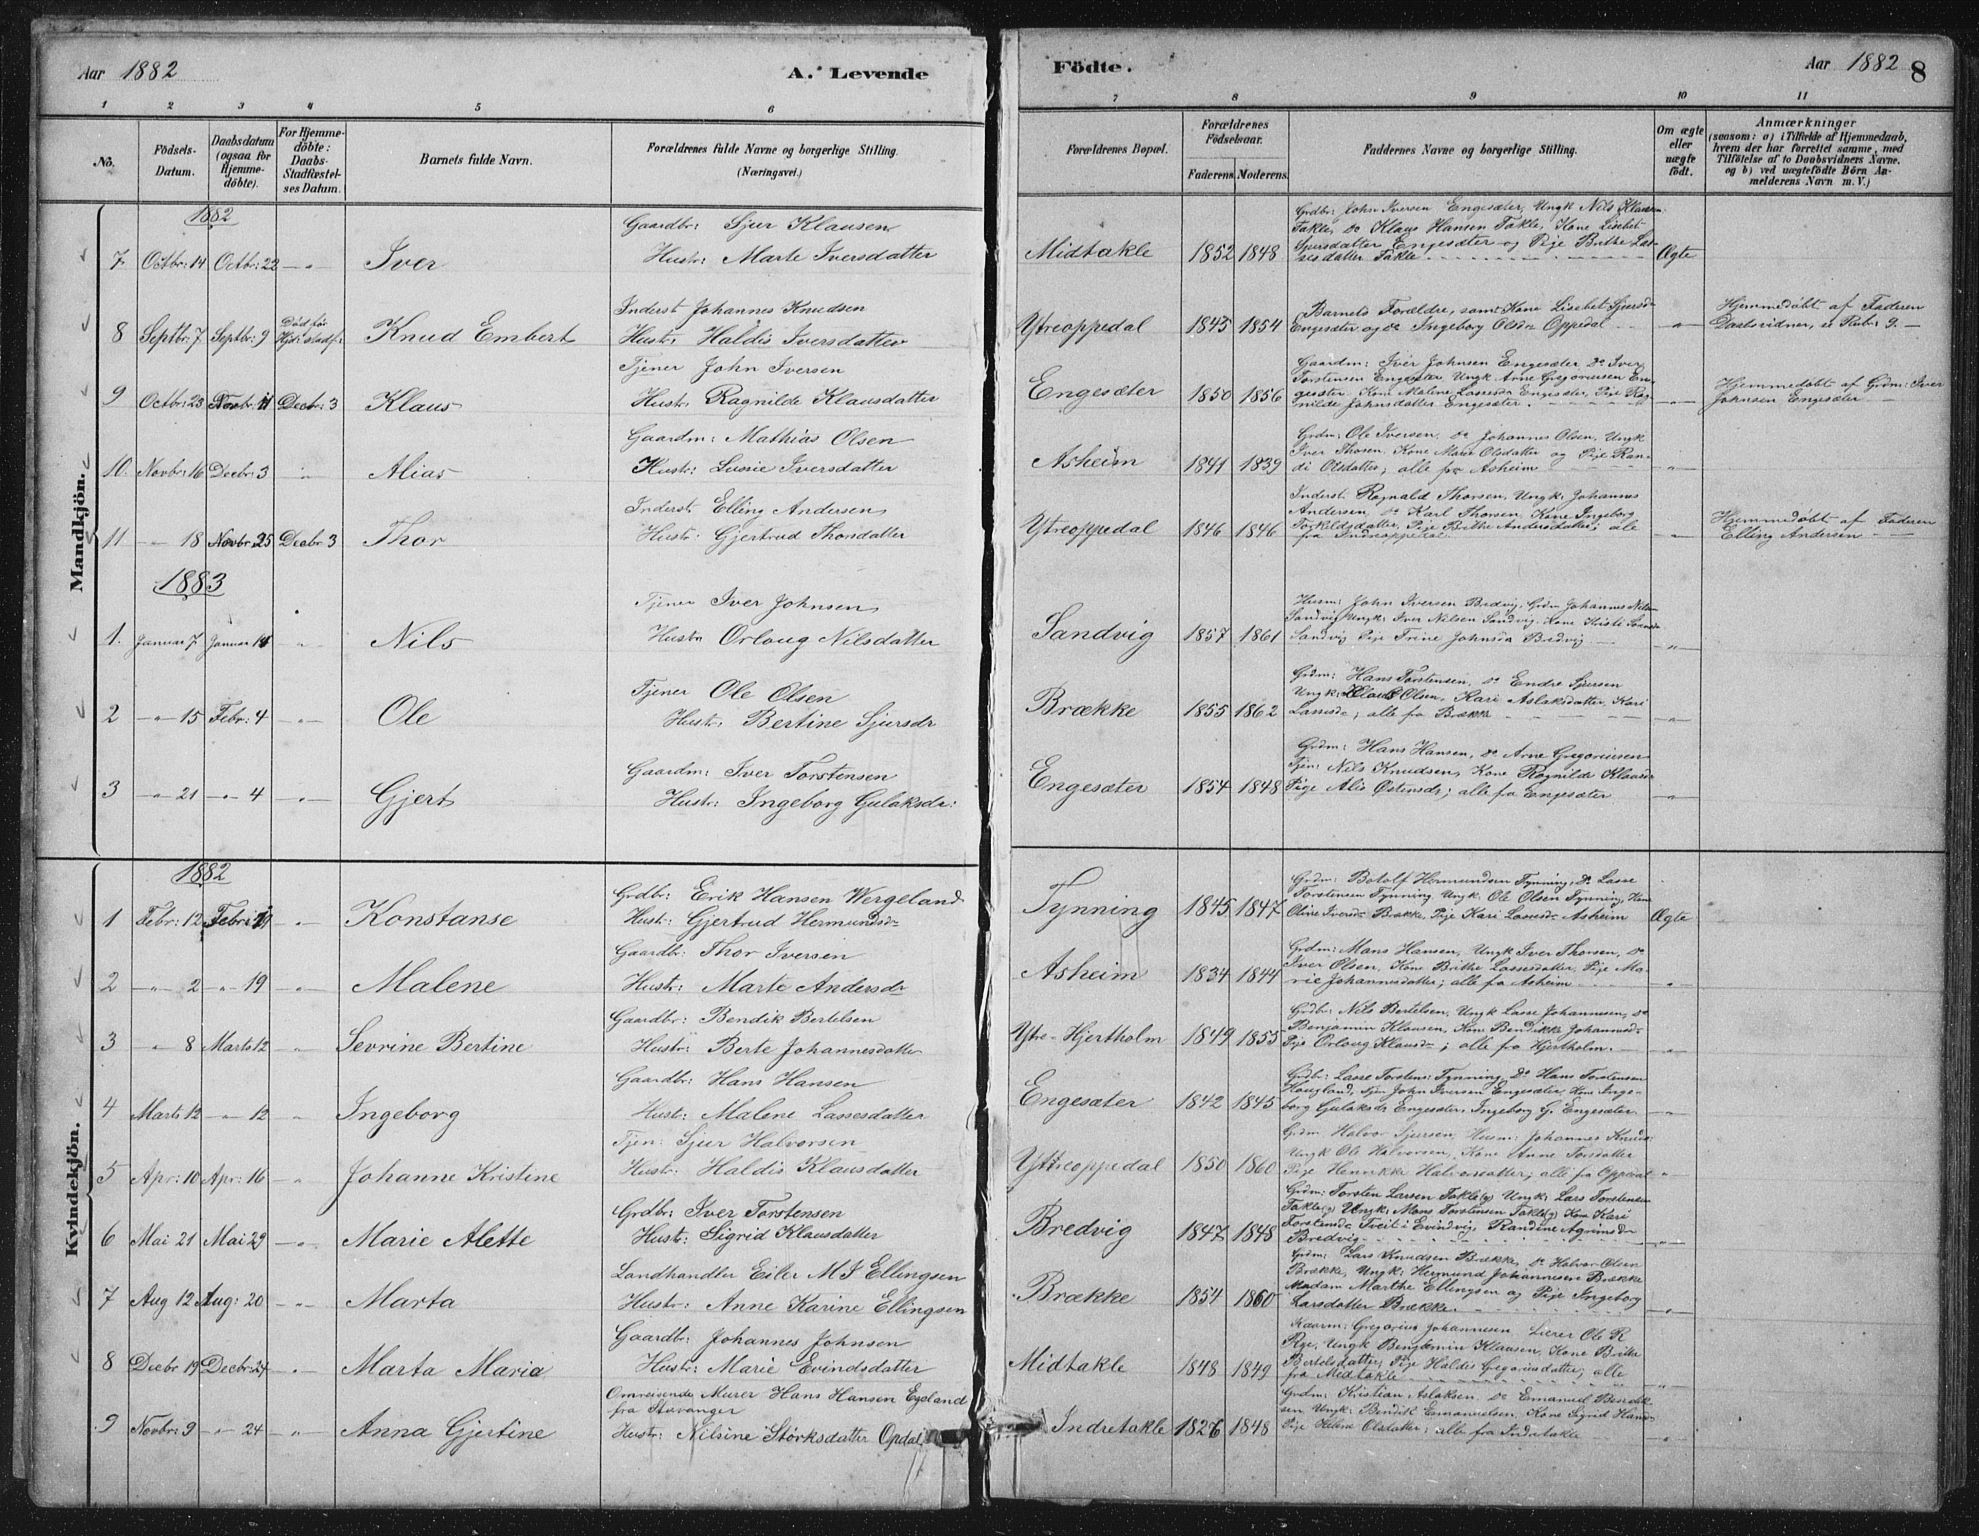 Aar 1882
A. Levende
Födte.
Aar 1882
8
1 2 3 4 5 6 7 8 9 10 11
No.
Födsels-Datum.
Daabsdatum (ogsaa for Hjemme-döbte).
For Hjemme-döbte: Daabs-Stadfæstel-ses Datum.
Barnets fulde Navn.
Forældrenes fulde Navne og borgerlige Stilling. (Næringsvei.)
Forældrenes Bopæl.
Forældrenes Födselsaar.
Faderens. Moderens.
Faddernes Navne og borgerlige Stilling.
Om ægte eller uægte födt.
Anmærkninger
(saasom: a) i Tilfælde af Hjemmedaab,
hvem der har forrettet samme, med
Tilföielse af to Daabsvidners Navne.
og b) ved uægtefödte Börn An-
melderens Navn m. V.)
Mandkjön.
1882
Gaardbr: Sjur Klausen
7 Octbr: 14 Octbr: 22 Iver
Hustr: Marte Iversdatter
Midtakle 1852 1848 Ægte
Grdbr: John Iversen Engesæter, Ungk Nils Klausen
Takle, Do Klaus Hansen Takle, Kone Lisebet
Sjursdatter Engesæter og Pige Brithe Las-
sesdatter Takle
Inderst Johannes Knudsen
8 Septbr: 7 Septbr: 9 Död før Hjd: stadf: Knud Embert
Hustr: Haldis Iversdatter
Ytreoppedal 1845 1854
Barnets Forældre, samt Kone Lisebet Sjursd
Engesæter og do Ingeborg Olsdr Oppedal
Hjemmedøbt af Faderen
Daabsvidner, se Rubr: 9.
Tjener John Iversen
9 Octbr: 23 Decbr: 3 Klaus
Hustr: Ragnilde Klausdatter
Engesæter 1850 1856
Gaardm: Iver Johnsen Engesæter Do Iver
Torstensen Engesæter, Ungk Arne Gregoriusen En-
gesæter, Kone Malene Lassesdr Engesæter, Pige Rag-
nilde Johnsdatter Engesæter.
Hjemmedøbt af Grdm: Iver
Johnsen Engesæter
Gaardm: Mathias Olsen
10. Novbr: 16 Decbr: 3 Alias
Hustr: Lussie Iversdatter
Asheim 1841 1839
Grdm: Ole Iversen, do Johannes Olsen, Ungk
Iver Thorsen, Kone Marte Olsdatter og Pige Ran-
di Olsdatter; alle fra Asheim
Inderst Elling Andersen
11 18 Novbr: 25 Decbr 3 Thor
Hustr: Gjertrud Thorsdatter
Ytreoppedal 1846 1846
Inderst Ragnald Thorsen, Ungk: Johannes
Andersen, do Karl Thorsen, Kone Ingeborg
Torkildsdatter, Pige Brithe Andersdatter; alle
fra Indreoppedal
Hjemmedøbt af Faderen
Elling Andersen
1883
Tjener Iver Johnsen
1. Januar 7 Januar 14 Nils
Hustr Orloug Nilsdatter
Sandvig 1857 1861
Husm: John Iversen Bredvig, Grdm Johannes Nils
Sandvig Ungk: Iver Nilsen Sandvig, Kone Kristi
Sandvig Pige Trine Johnsdr Bredvig
Tjener Ole Olsen
2 15 Febr: 4 Ole
Hustr: Bertine Sjursdr
Brække 1855 1862
Grdm: Hans Torstensen, do Endre Sjursen
Ungk: Olsen, Kari Aslaksdatter, Kari
Lassesdr; alle fra Brække
Gaardm: Iver Torstensen
3 21 4 Gjert
Hustr: Ingeborg Gulaksdr:
Engesæter 1854 1848
Grdm: Hans Hansen, do Arne Gregoriusen
Tjen: Nils Knudsen, Kone Ragnilde Klausdr
Pige Alis Østensdr; alle fra Engesæter
Kvindekjön.
1882
Grdbr: Erik Hansen Wergeland
1 Febr: 12 Febr: 19 Konstanse
Hustr: Gjertrud Hermundsdr
Tynning 1845 1847 Ægte
Grdm: Botolf Hermundsen Tynning, Do Lasse
Torstensen Tynning Ungk Ole Olsen Tynning, Kone
Oline Iversdr Brække, Pige Kari Lassesdr Asheim
Gaardbr: Thor Iversen
2 2 19 Malene
Hustr: Marte Andersdr
Asheim 1834 1844
Grdm: Mons Hansen, Ungk Iver Thorsen, do
Iver Olsen, Kone Brithe Lassesdatter, Pige Ma-
rie Johannesdatter; alle fra Asheim
Gaardbr: Bendik Bertelsen
3 8 Marts 12 Sevrine Bertine
Hustr: Berte Johannesdatter
Ytre-Hjertholm 1849 1855
Grdbr: Nils Bertelsen, Ungk Lasse Johannesen, do
Benjamin Klausen, Kone Bendikke Johannesd
Pige Orloug Klausdr; alle fra Hjertholm.
Gaardbr: Hans Hansen
4 Marts 12 12 Ingeborg
Hustr: Malene Lassesdatter
Engesæter 1842 1845
Grdbr: Lasse Torstens: Tynning, Do Hans Torstensen
Hougland, Tjen John Iversen Engesæter, Kone Inge-
borg Gulaksdr Engesæter, Ingeborg G. Engesæter
Tjen: Sjur Halvorsen
5 Apr: 10 Apr: 16 Johanne Kristine
Hustr: Haldis Klausdatter
Yttreoppedal 1850 1860
Grdm Halvor Sjursen, Husm: Johannes Knuds:
Ungk Ole Halvorsen, Kone Anne Torsdatter
Pige Henrikke Halvorsdatter; alle fra Oppedal
Grdbr: Iver Torstensen
6 Mai 21 Mai 29 Marie Alette
Hustr: Sigrid Klausdatter
Bredvig 1847 1848
Grdm: Torsten Larsen Takle(y) Ungk: Lars Torstensen
Takle(y) Ungk: Mons Torstensen Takle(y) Kone Kari
Torstensdr Tveit i Evindvig, Randine
Bredvig
Landhandler Eiler M J Ellingsen
7 Aug 12 Aug: 20 Marta
Hustr: Anne Karine Ellingsen
Brække 1854 1860
Grdm: Lars Knudsen Brække, do Halvor Olsen
Brække, Ungk: Hermund Johannesen Brække
Madam Marthe Ellingsen og Pige Ingeborg
Larsdatter Brække.
Gaardbr: Johannes Johnsen
8 Decbr 19 Decbr: 24 Marta Maria
Hustr: Marie Evindsdatter
Midtakle 1848 1849
Kaarm: Gregorius Johannesen Lærer Ole R
Rye, Ungk Benjamin Klausen, Kone Brithe
Bertelsdatter, Pige Haldis Gregoriusdatter; alle
fra Midtakle
Omreisende Murer Hans Hansen Egeland
fra Stavanger
9 Novbr: 9 24 Anna Gjertine
Hustr: Nilsine Störksdatter Opdal
Indretakle 1826 1848
Grdm: Kristian Aslaksen Do Emanuel Bendik-
sen, Ungk: Bendik Emanuelsen, Kone Sigrid Hans
Pige Helene Olsdatter; alle fra Indretakle